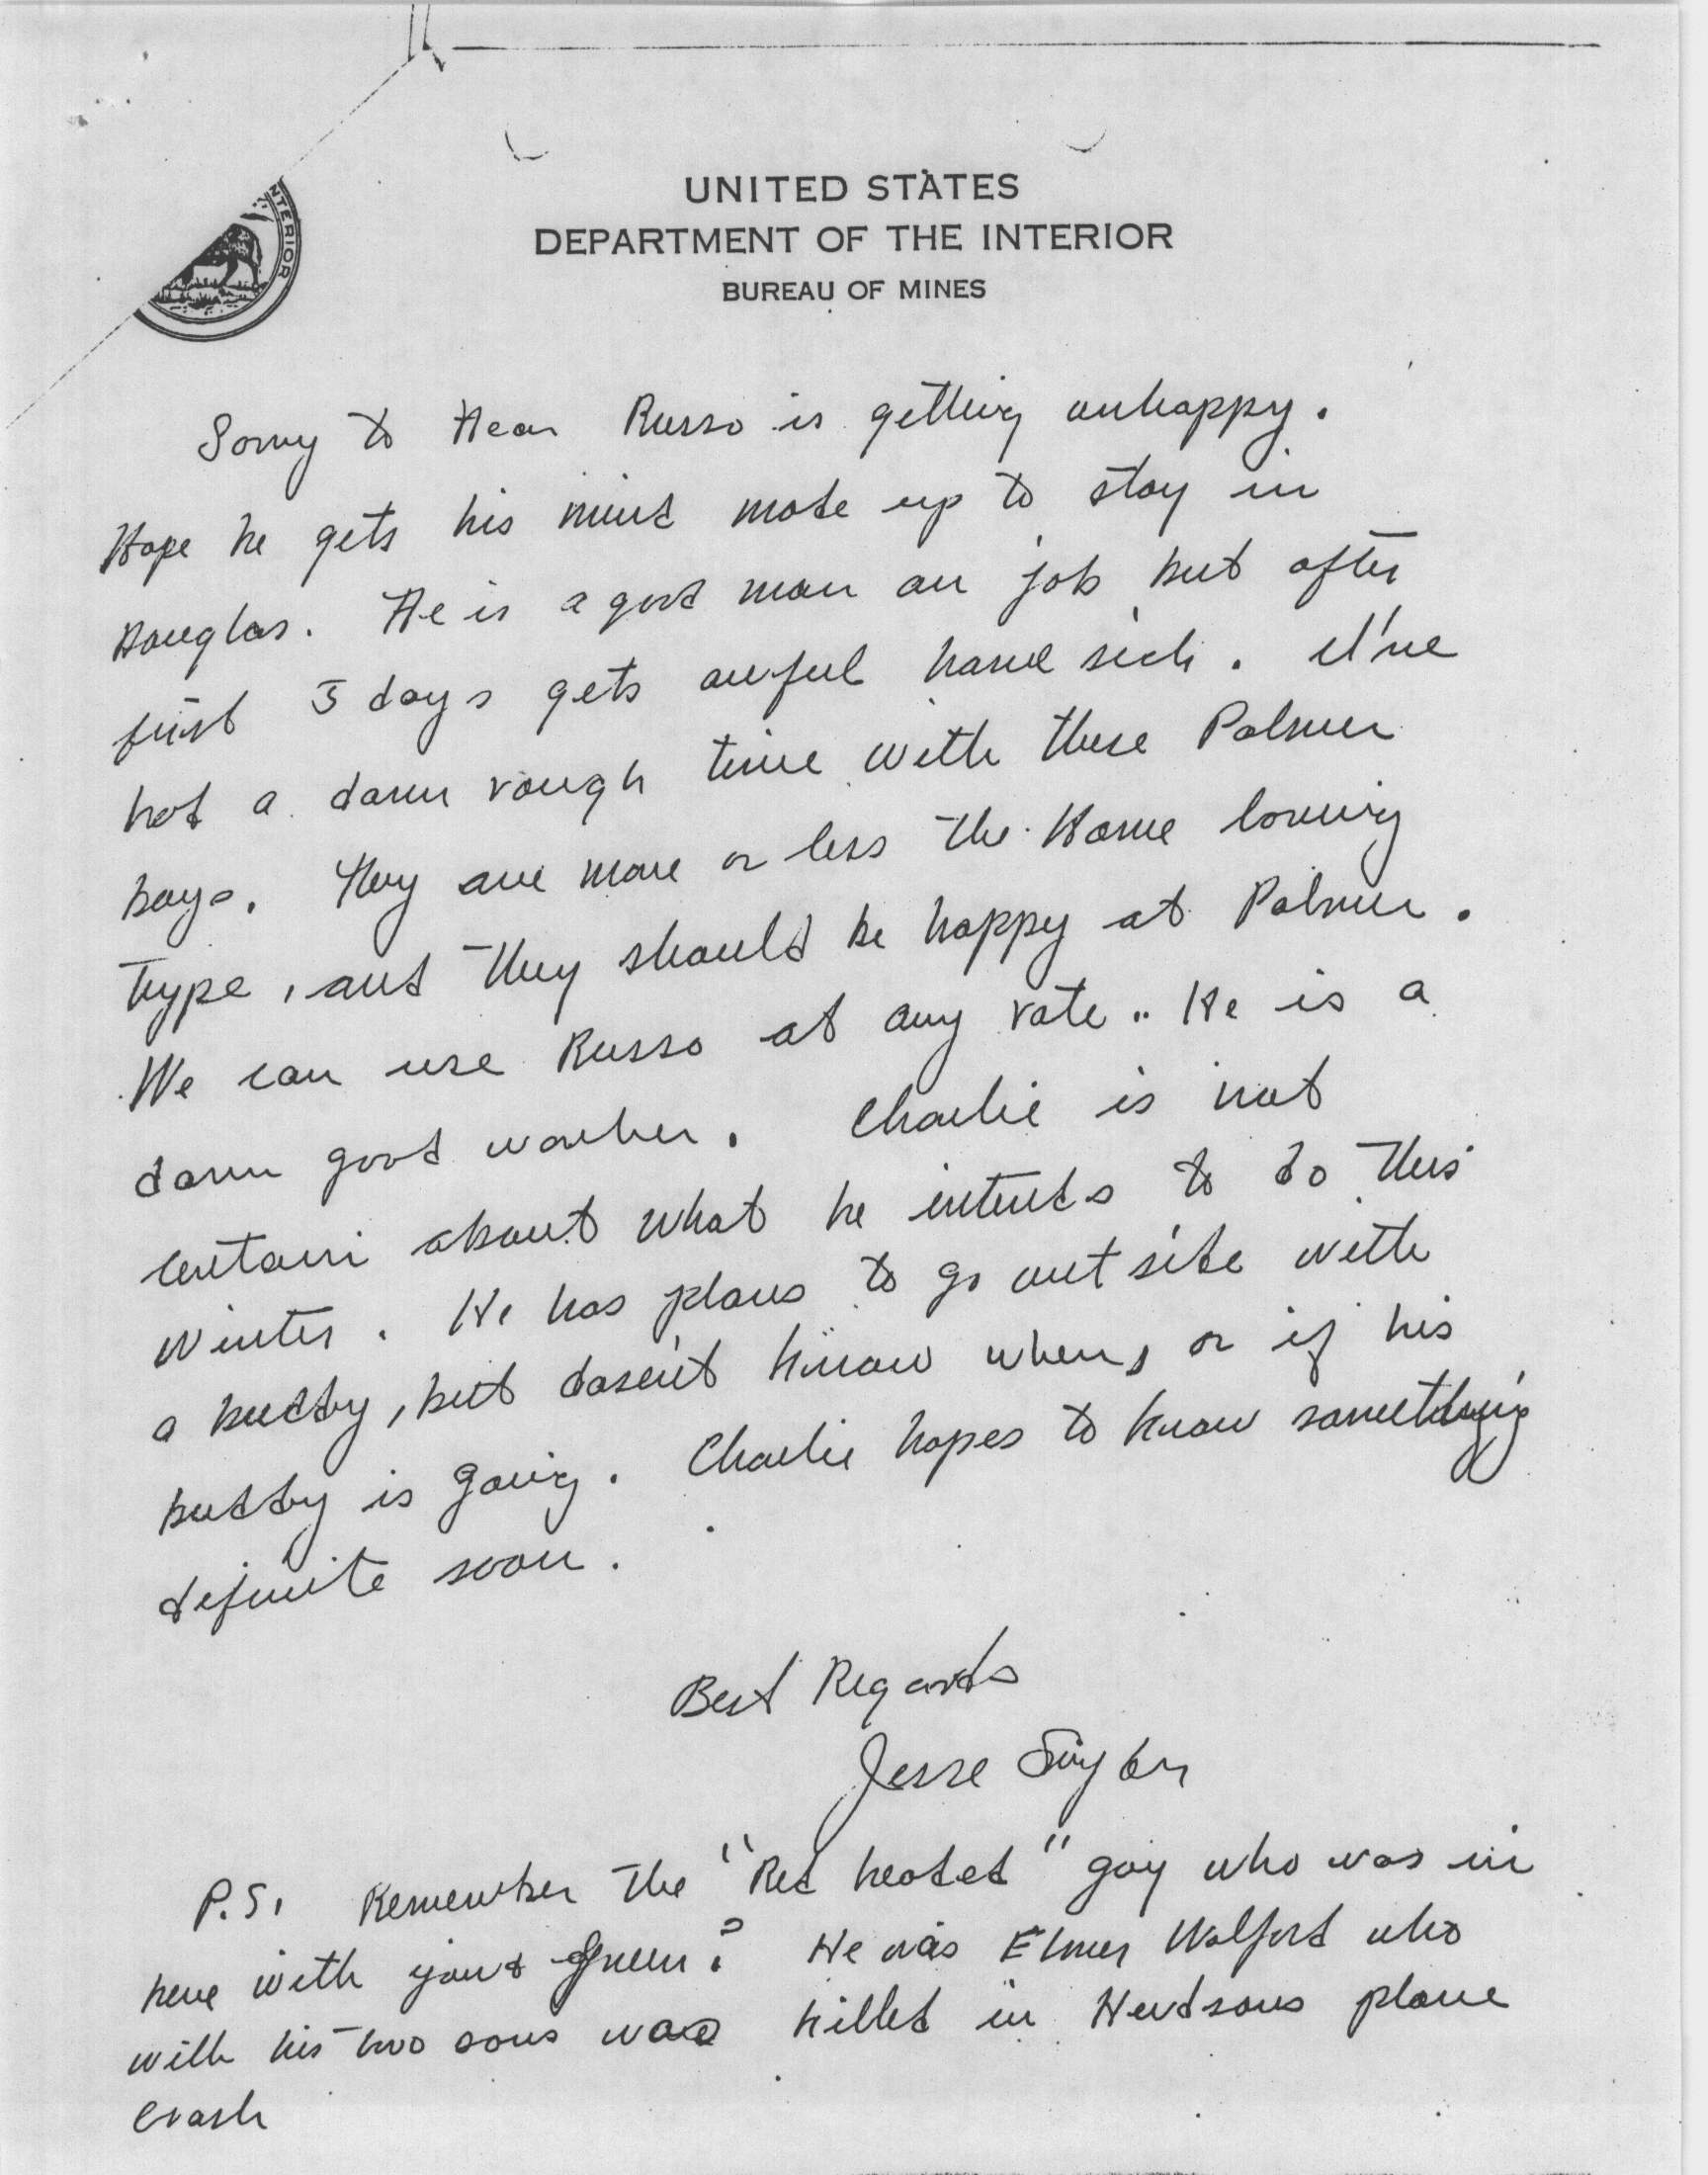 INTERIOR
UNITED STATES
DEPARTMENT OF THE INTERIOR
BUREAU OF MINES
Sorry to Hear Russo is getting unhappy.
Hope he gets his mind made up to stay in
Douglas. He is a good man on job but after
first 5 days gets awful home sick. I've
had a damn rough time with these Palmer
boys. They are more or less the Home loving
type, and they should be happy at Palmer.
We can use Russo at any rate.. He is a
damn good worker. Charlie is not
certain about what he intends to do this
winter. He has plans to go out side with
a buddy, but dosen't know when, or if his
buddy is going. Charlie hopes to know something
definite soon.
Best Regards
Jesse
P.S. Remember the "Red headed" guy who was in
here with you & Green? He was Elmer Wolford who
with his two sons was killed in Hudsons plane
crash